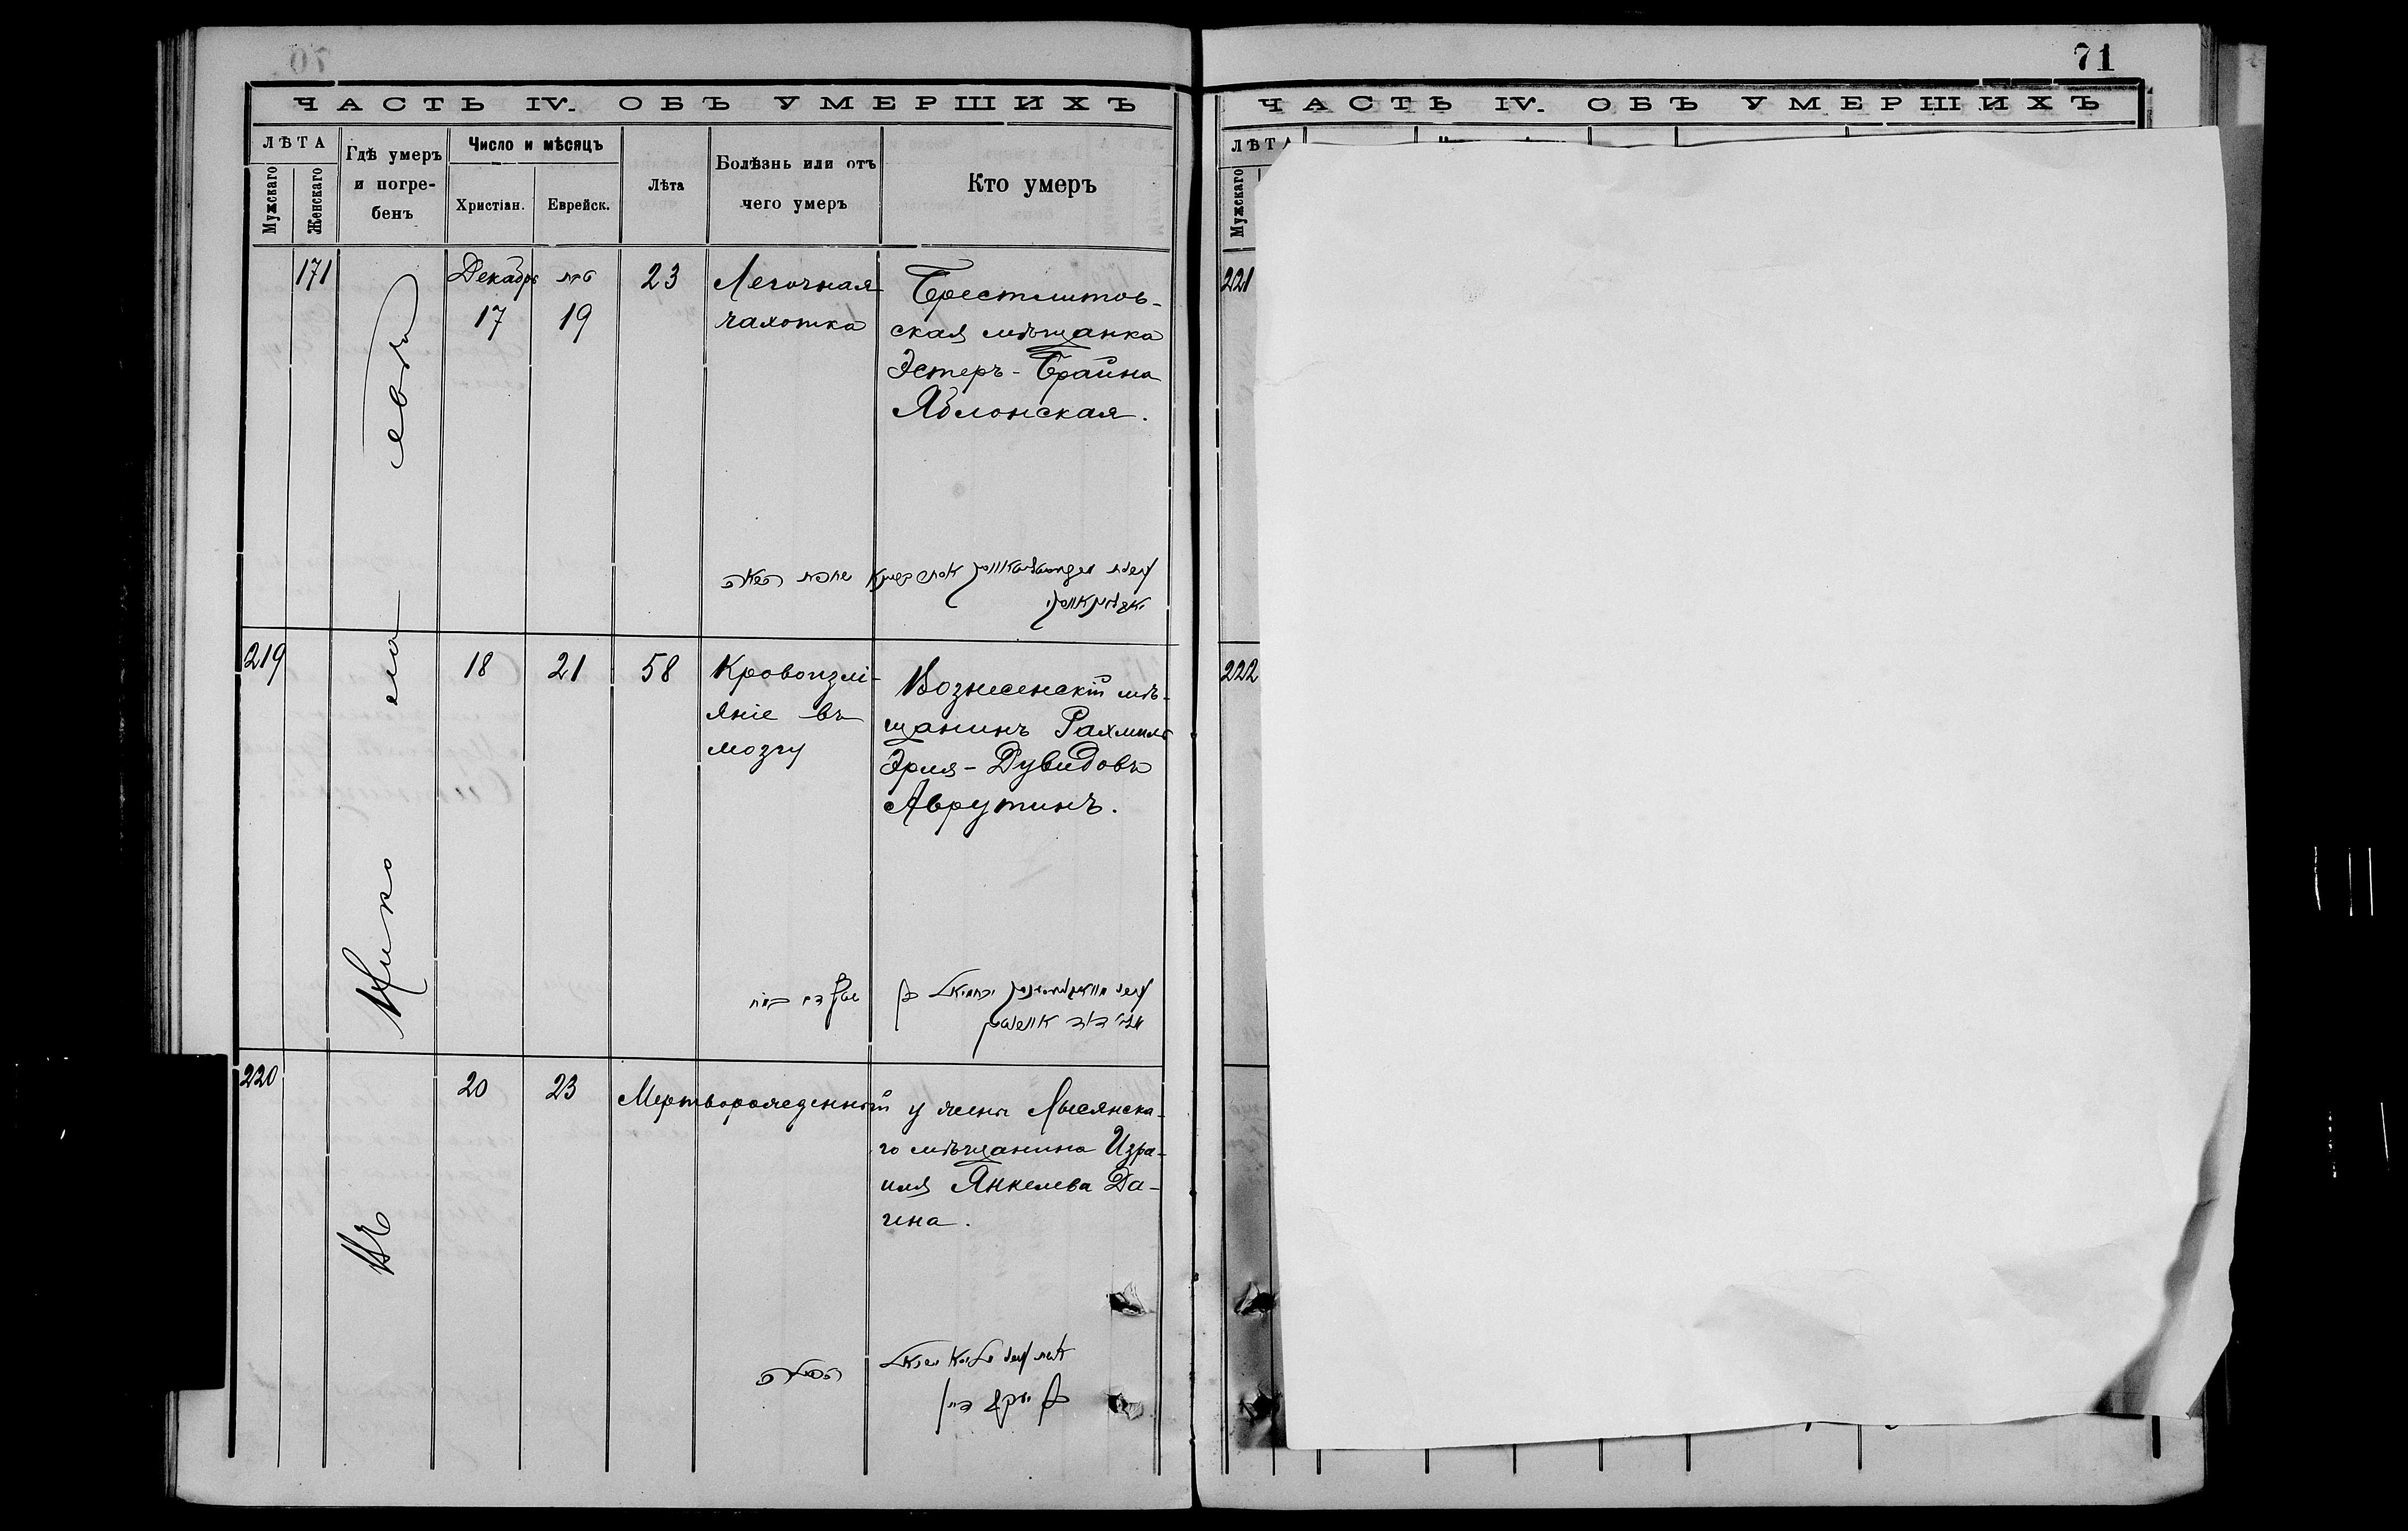 ЧАСТЬ IV. ОБЪ УМЕРШИХЪ
ЛѢТА
Мужскаго
Женскаго
Гдѣ умеръ
и погре-
бенъ
Число и мѣсяцъ
Христіан.
Еврейск.
Лѣта
Болѣзнь или отъ
чего умеръ
Кто умеръ
Въ Нико ла евѣ
171
Декабрь
17
19
23
Легочная
чахотка
Брестлитов-
ская мѣщанка
Эстеръ-Брайна
Яблонская.
219
18
21
58
Кровоизлі-
яніе въ
мозгу
Вознесенскій мѣ-
щанинъ Рахмиль
Эрля-Дувидовъ
Аврутинъ.
220
20
23
Мертворожденный
у жены Лысянска-
го мѣщанина Изра-
иля Янкелева Да-
гена.
71
ЧАСТЬ IV. ОБЪ УМЕРШИХЪ
ЛѢТА
Мужскаго
221
222